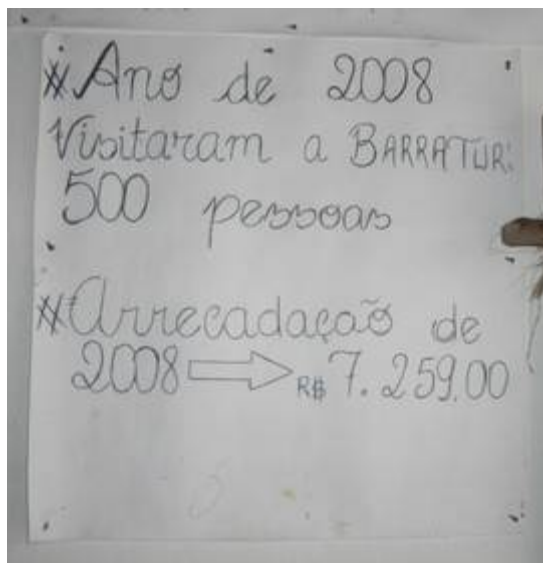 * Ano de 2008
Visitaram a BARRATUR:
500 pessoas
* Arrecadação de
2008 ⇨ R$ 7.259.00